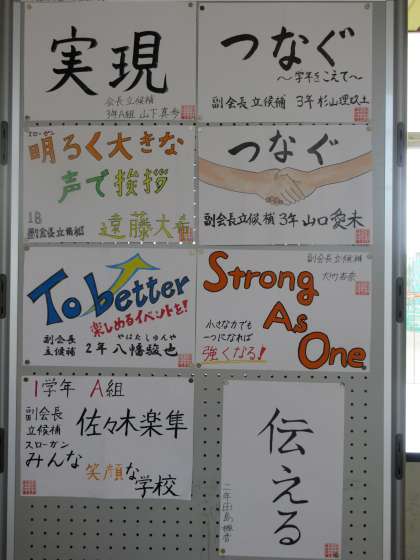 実現
会長立候補
3年A組 山下真歩
つなぐ
〜学年をこえて〜
副会長立候補 3年 杉山理以土
スローガン
明るく大きな
声で挨拶
1B
副会長立候補
遠藤大
つなぐ
副会長立候補 3年 山口愛未
To better
楽しめるイベントを!
副会長
立候補
やはたしゅんや
2年 八幡駿也
Strong
As
One
副会長立候補
小さな力でも
一つになれば
強くなる!
1学年 A組
副会長
立候補
佐々木楽隼
スローガン
みんな
笑顔な
学校
伝える